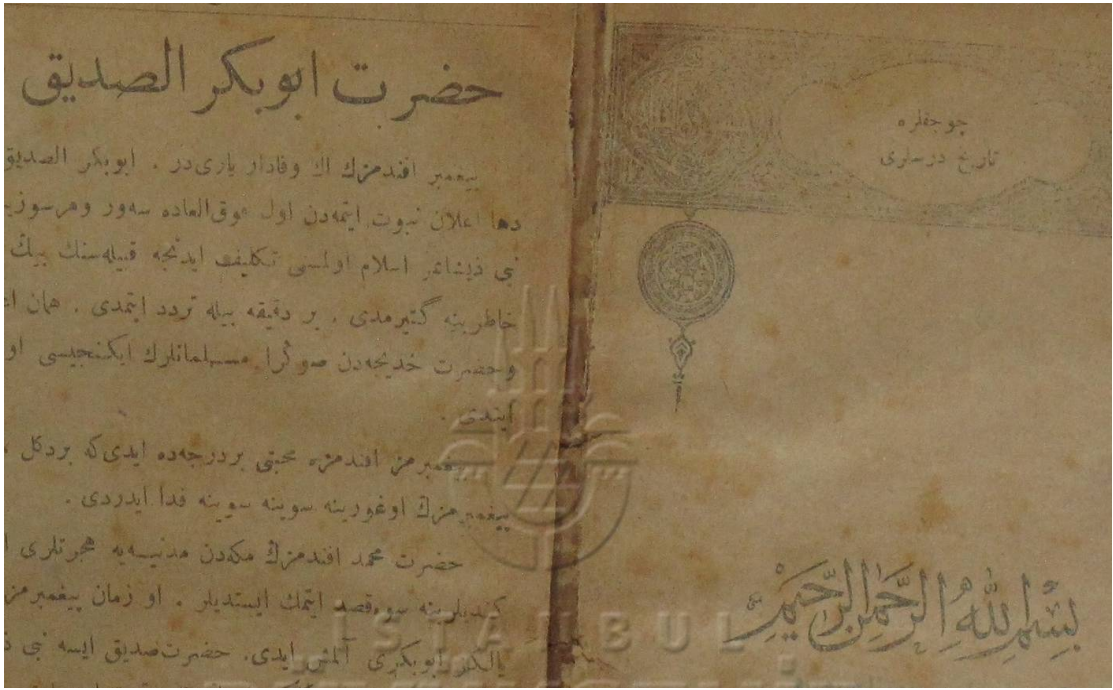 چوجقلره
تاریخ درسلری
بِسْمِ اللّٰهِ الرَّحْمٰنِ الرَّحِيْمِ
حضرت ابوبکر الصدیق
پیغمبر افندمزڭ اڭ وفادار یاری در . ابوبکر الصدیق
دها اعلان نبوت ایتمه‌دن اول فوق‌العاده سه‌ور وهرسوزینه
نبی ذیشانمز اسلام اولمسی تکلیف ایدنجه قبیله‌سنڭ بیڭ
خاطرینه گتیرمدی . بر دقیقه بیله تردد ایتمدی . همان
وحضرت خدیجه‌دن صوڭرا مسلمانلرڭ ایکنجیسی او
ایتدی .
پیغمبرمز افندمزه محبتی بردرجه‌ده ایدی‌که بردکل
پیغمبرمزڭ اوغورینه سوینه سوینه فدا ایدردی .
حضرت محمد افندمزڭ مکه‌دن مدینه‌یه هجرتلری
کندیلرینه سوءقصد ایتمك ایستدیلر . او زمان پیغمبرمز
یالڭز ابوبکری آلمش ایدی. حضرت صدیق ایسه نبی
İSTANBUL